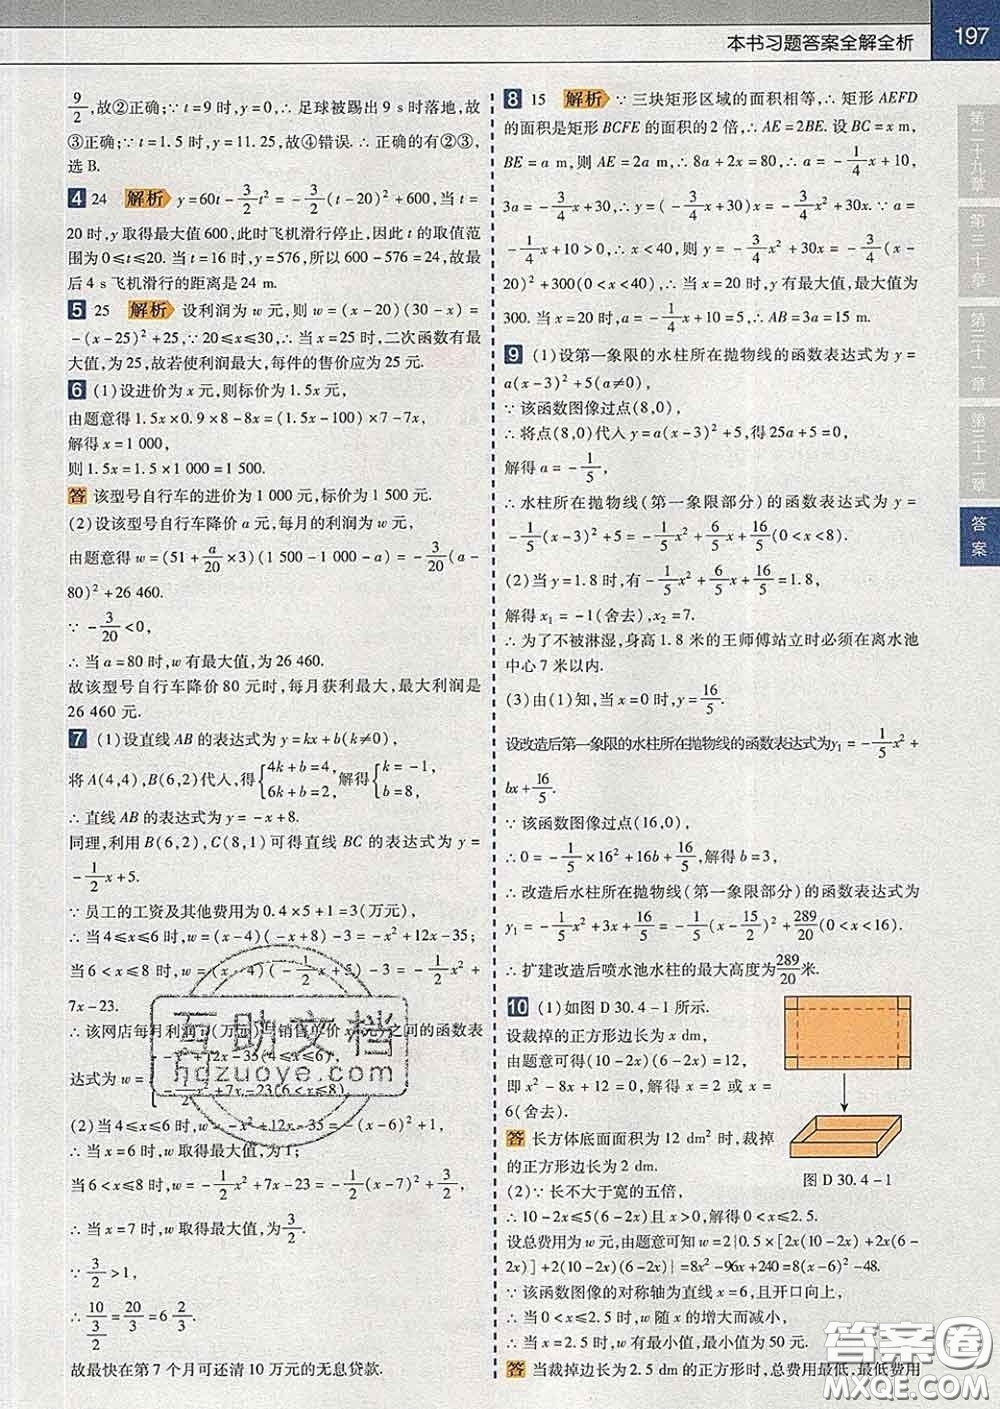 本书习题答案全解全析
197
9/2,故②正确;∵t=9时,y=0,∴足球被踢出9 s时落地,故
③正确;∵t=1.5时,y=11.25,故④错误.∴正确的有②③,
选B.
4 24 解析 y=60t-3/2t²=-3/2(t-20)²+600,当t=
20时,y取得最大值600,此时飞机滑行停止,因此t的取值范
围为0≤t≤20.当t=16时,y=576,所以600-576=24,故最
后4 s飞机滑行的距离是24 m.
5 25 解析 设利润为w元,则w=(x-20)(30-x)=
-(x-25)²+25,∵20≤x≤30,∴当x=25时,二次函数有最
大值,为25,故若使利润最大,每件的售价应为25元.
6 (1)设进价为x元,则标价为1.5x元,
由题意得1.5x×0.9×8-8x=(1.5x-100)×7-7x,
解得x=1 000,
则1.5x=1.5×1 000=1 500.
答 该型号自行车的进价为1 000元,标价为1 500元.
(2)设该型号自行车降价a元,每月的利润为w元,
由题意得w=(51+a/20×3)(1 500-1 000-a)=-3/20(a-
80)²+26 460.
∵-3/20<0,
∴当a=80时,w有最大值,为26 460.
故该型号自行车降价80元时,每月获利最大,最大利润是
26 460元.
7 (1)设直线AB的表达式为y=kx+b(k≠0),
将A(4,4),B(6,2)代入,得{4k+b=4, 6k+b=2, 解得{k=-1, b=8,
∴直线AB的表达式为y=-x+8.
同理,利用B(6,2),C(8,1)可得直线BC的表达式为y=
-1/2x+5.
∵员工的工资及其他费用为0.4×5+1=3(万元),
∴当4≤x≤6时,w=(x-4)(-x+8)-3=-x²+12x-35;
当6<x≤8时,w=(x-4)(-1/2x+5)-3=-1/2x²+
7x-23.
∴该网店每月利润w(万元)与销售单价x(元)之间的函数表
达式为w={-x²+12x-35(4≤x≤6), -1/2x²+7x-23(6<x≤8).
(2)当4≤x≤6时,w=-x²+12x-35=-(x-6)²+1,
∴当x=6时,w取得最大值1;
当6<x≤8时,w=-1/2x²+7x-23=-1/2(x-7)²+3/2,
∴当x=7时,w取得最大值,为3/2.
∵3/2>1,
∴10/(3/2)=20/3=6 2/3,
故最快在第7个月可还清10万元的无息贷款.
8 15 解析 ∵三块矩形区域的面积相等,∴矩形AEFD
的面积是矩形BCFE的面积的2倍,∴AE=2BE.设BC=x m,
BE=a m,则AE=2a m,∴8a+2x=80,∴a=-1/4x+10,
3a=-3/4x+30,∴y=(-3/4x+30)x=-3/4x²+30x.∵a=
-1/4x+10>0,∴x<40,则y=-3/4x²+30x=-3/4(x-
20)²+300(0<x<40),∴当x=20时,y有最大值,最大值为
300.当x=20时,a=-1/4x+10=5,∴AB=3a=15 m.
9 (1)设第一象限的水柱所在抛物线的函数表达式为y=
a(x-3)²+5(a≠0),
∵该函数图像过点(8,0),
∴将点(8,0)代入y=a(x-3)²+5,得25a+5=0,
解得a=-1/5,
∴水柱所在抛物线(第一象限部分)的函数表达式为y=
-1/5(x-3)²+5=-1/5x²+6/5x+16/5(0<x<8).
(2)当y=1.8时,有-1/5x²+6/5x+16/5=1.8,
解得x₁=-1(舍去),x₂=7.
∴为了不被淋湿,身高1.8米的王师傅站立时必须在离水池
中心7米以内.
(3)由(1)知,当x=0时,y=16/5.
设改造后第一象限的水柱所在抛物线的函数表达式为y₁=-1/5x²+
bx+16/5.
∵该函数图像过点(16,0),
∴0=-1/5×16²+16b+16/5,解得b=3,
∴改造后水柱所在抛物线(第一象限部分)的函数表达式为
y₁=-1/5x²+3x+16/5=-1/5(x-15/2)²+289/20(0<x<16).
∴扩建改造后喷水池水柱的最大高度为289/20米.
10 (1)如图D 30.4-1所示.
设裁掉的正方形边长为x dm,
由题意可得(10-2x)(6-2x)=12,
即x²-8x+12=0,解得x=2或x=
6(舍去).
答 长方体底面面积为12 dm²时,裁掉
的正方形边长为2 dm.
图D 30.4-1
(2)∵长不大于宽的五倍,
∴10-2x≤5(6-2x)且x>0,解得0<x≤2.5.
设总费用为w元,由题意可知w=2{0.5×[2x(10-2x)+2x(6-
2x)]+2(10-2x)(6-2x)}=8x²-96x+240=8(x-6)²-48.
∵该函数图像的对称轴为直线x=6,且开口向上,
∴当0<x≤2.5时,w随x的增大而减小,
∴当x=2.5时,w有最小值,最小值为50元.
答 当裁掉边长为2.5 dm的正方形时,总费用最低,最低费用
第二十九章
第三十章
第三十一章
第三十二章
答案
互助文档
hdzuoye.com
答案圈
MXQE.COM